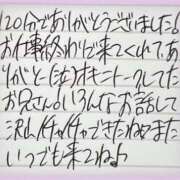 120分でありがとうございました!
お仕事終わりで来てくれて、あ
りがと(注)オキニトークしてた
お兄さん。いろんなお話して
沢山イチャイチャできたねっまた
いつでも来てね♪